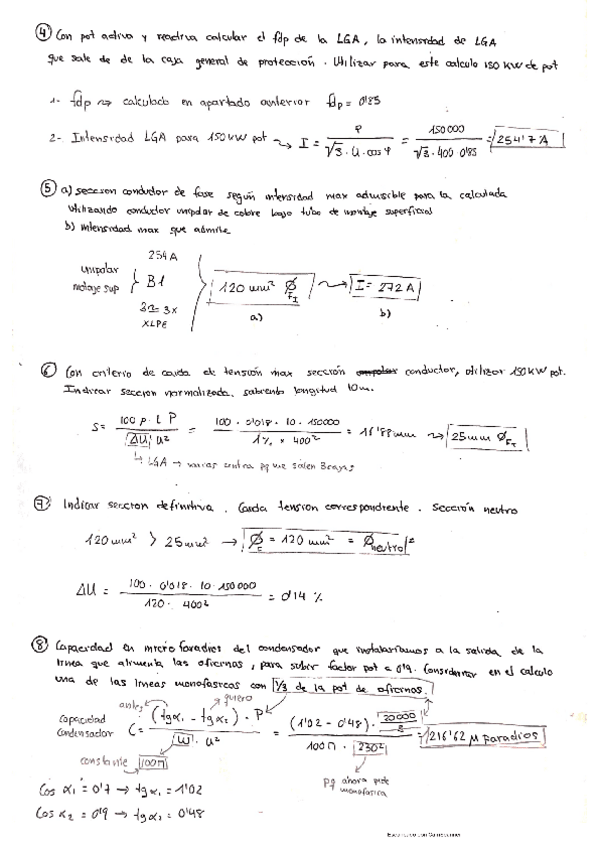 ④ Con pot activa y reactiva calcular el fdp de la LGA, la intensidad de LGA
que sale de de la caja general de protección. Utilizar para este calculo 150 KW de pot
1- fdp ⇝ calculado en apartado anterior fdp = 0'85
2- Intensidad LGA para 150KW pot ⇝ I = P / √3 · U · cos φ = 150000 / √3 · 400 · 0'85 = 254'7 A
⑤ a) sección conductor de fase según intensidad max admisible para la calculada
Utilizando conductor unipolar de cobre bajo tubo de montaje superficial
b) intensidad max que admite
254 A
unipolar
B1
120 mm² ⇝ I = 272 A
3x
XLPE
a) b)
⑥ Con criterio de caida de tensión max sección conductor, utilizar 150KW pot.
Indicar seccion normalizada. sabiendo longitud 10m.
S = 100 ρ · L P / ΔU u² = 100 · 0'018 · 10 · 150000 / 1% × 400² = 16'88mm ⇝ 25mm
↳ LGA →
⑦ Indicar seccion definitiva. Caida tension correspondiente. Sección neutro
120 mm² > 25mm² → ∅ = 120 mm² = ∅ neutro
ΔU = 100 · 0'018 · 10 · 150000 / 120 · 400² = 0'14 %
⑧ Capacidad en microfaradios del condensador que instalaríamos a la salida de la
linea que alimenta las oficinas, para subir factor pot a 0'9. Considerar en el calculo
una de las lineas monofasicas con 1/3 de la pot de oficinas.
antes quiero
capacidad
condensador C = (tgα₁ - tgα₂) · P / W · u² = (1'02 - 0'48) · 20000/3 / 100π · 230² = 216'62 μ Faradios
constante 100π
pq ahora
monofasica
Cos α₁ = 0'7 → tgα₁ = 1'02
Cos α₂ = 0'9 → tgα₂ = 0'48
Escaneado con CamScanner